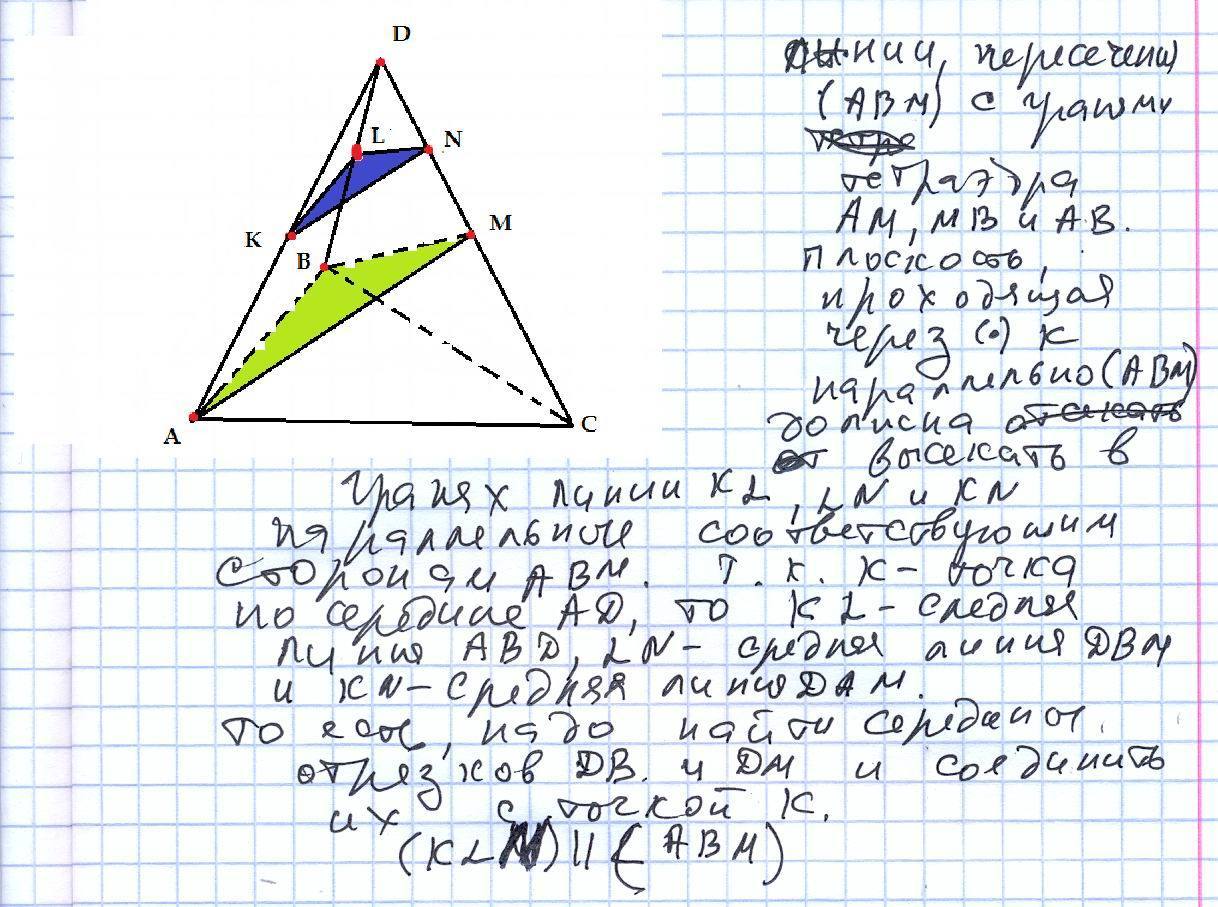 D
L
N
K
M
B
A
C
Линии, пересечения
(АВМ) с гранями
тетраэдра
АМ, МВ и АВ.
плоскость,
проходящая
через (•) К
параллельно (АВМ)
должна отсекать
высекать в
гранях линии KL, LN и KN
параллельные соответствующим
сторонам АВМ. Т.к. К - точка
по середине AD, то KL - средняя
линия ABD, LN - средняя линия DBM
и KN - средняя линия DAM.
то есть, надо найти середины
отрезков DB. и DM и соединить
их с точкой К.
(KLN) || (ABM)